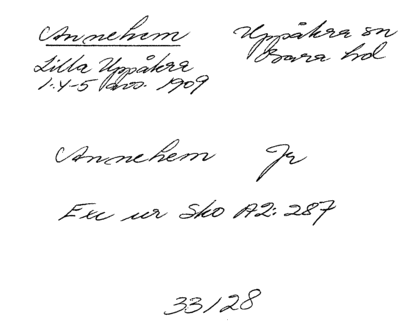 Annehem
Uppåkra sn
Bara hd
Lilla Uppåkra
1:4-5 avs. 1909
Annehem Jr
Exc ur Sko A2: 287
33/28